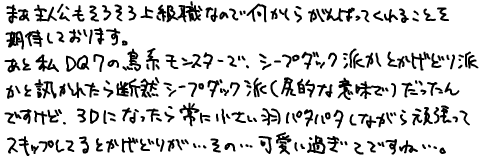 まぁ主人公もそろそろ上級職なので何かしらがんばってくれることを
期待しております。
あと私DQ7の鳥系モンスターで、シープダック派かとかげどり派
かと訊かれたら断然シープダック派(尻的な意味で)だったん
ですけど、3Dになったら常に小さい羽パタパタしながら頑張って
スキップしてるとかげどりが…その…可愛い過ぎてですね…。